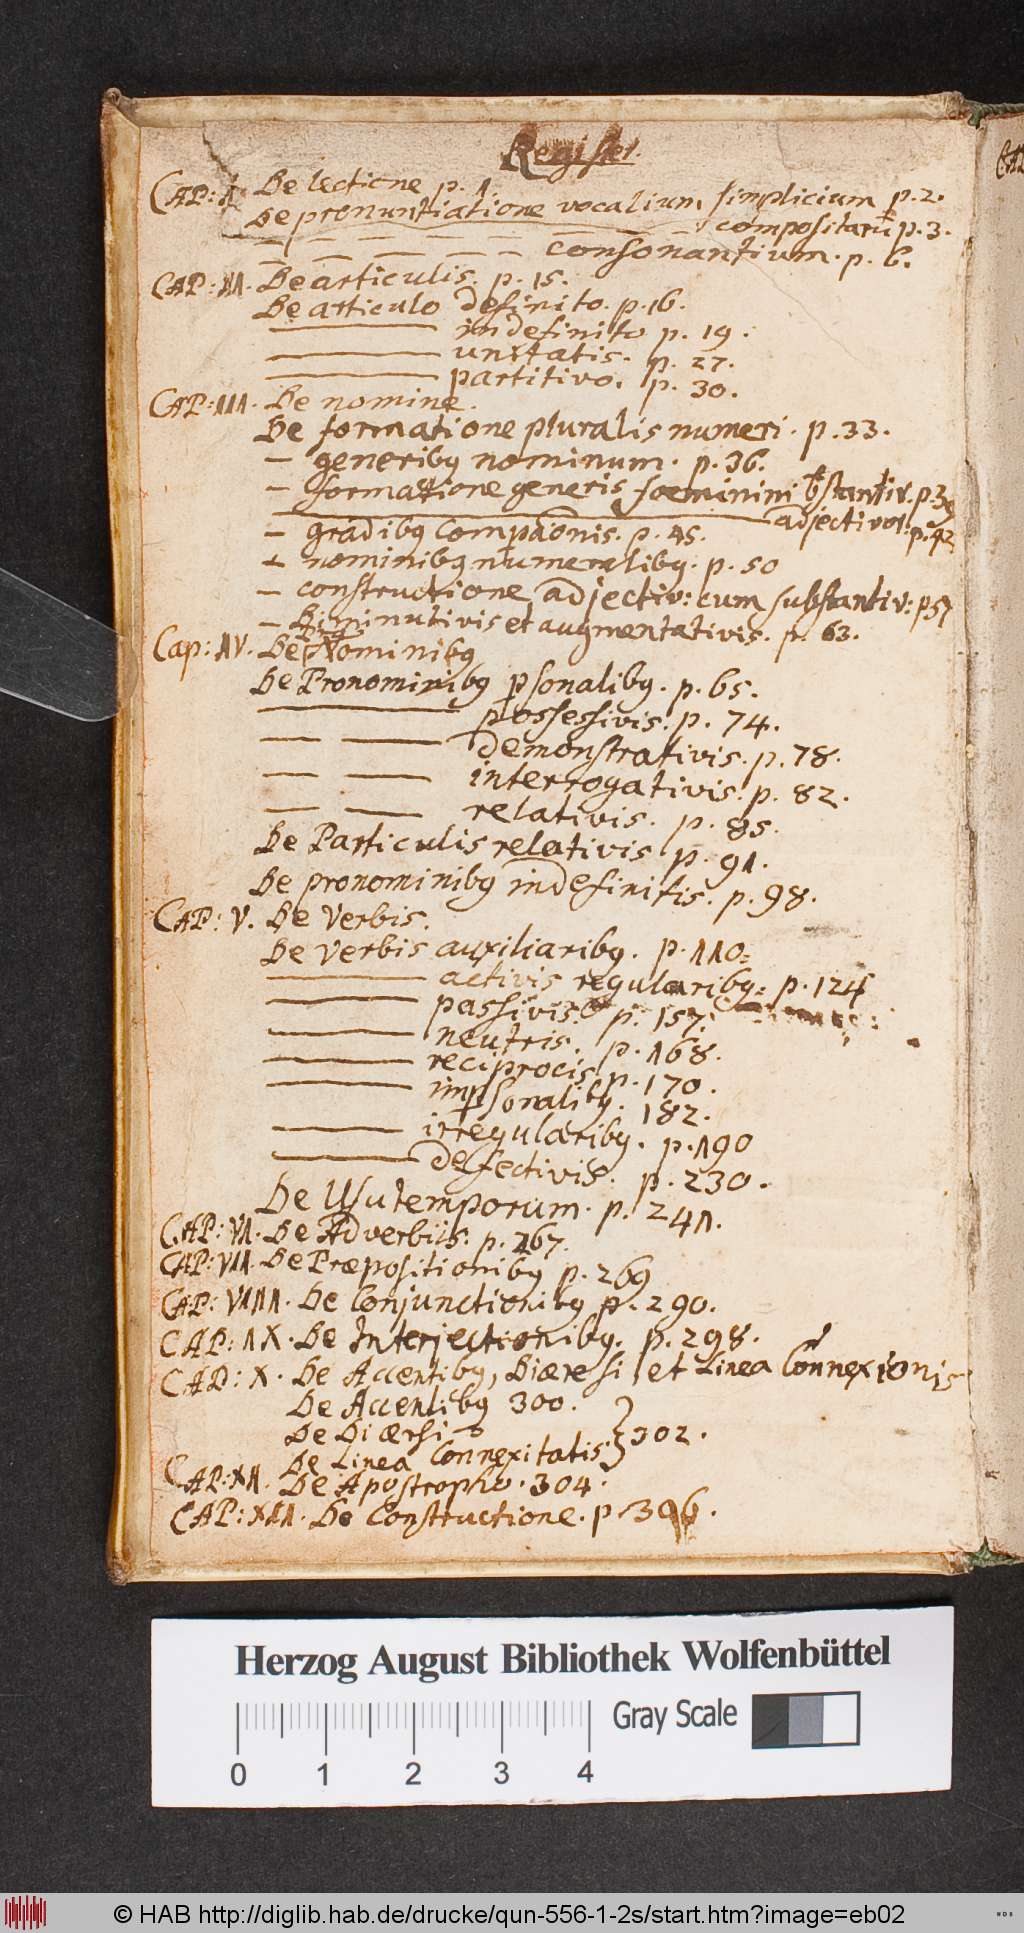 Register.
CAP: I. De lectione p. 1.
De pronuntiatione vocalium simplicium p. 2.
compositarũ p. 3.
consonantium. p. 6.
CAP: II. De articulis. p. 15.
De articulo definito. p. 16.
indefinito p. 19.
unitatis. p. 27.
partitivo. p. 30.
CAP: III. De nomine.
De formatione pluralis numeri. p. 33.
– generibq nominum. p. 36.
– formatione generis foeminini stantiv. p. 39
adjectivor. p. 42
– gradibq compãonis. p. 45.
– nominibq numeralibq. p. 50
– constructione adjectiv: cum substantiv: p 57
– Diminutivis et augmentativis. p. 63.
Cap: IV. De Nominibq
De Pronominibq psonalibq. p. 65.
possessivis. p. 74.
demonstrativis. p. 78.
interrogativis. p. 82.
relativis. p. 85.
De Particulis relativis p. 91.
De pronominibq indefinitis. p. 98.
CAP: V. De Verbis.
De Verbis auxiliaribq. p. 110.
activis regularibq: p. 124
passivis. p. 157.
neutris. p. 168.
reciprocis p. 170.
impsonalibq. 182.
irregularibq. p. 190
defectivis. p. 230.
De Usu temporum. p. 241.
CAP: VI. De Adverbiis. p. 267.
CAP: VII. De Præpositionibq p. 269
CAP: VIII. De Conjunctionibq p. 290.
CAP: IX. De Interjectionibq. p. 298.
CAP: X. De Accentibq, Diæresi et Linea Connexionis
De Accentibq 300.
De Diærsi
De Linea Connexitatis } 302.
CAP: XI. De Apostropho. 304.
CAP: XII. De Constructione. p. 306.
Herzog August Bibliothek Wolfenbüttel
Gray Scale
0 1 2 3 4
© HAB http://diglib.hab.de/drucke/qun-556-1-2s/start.htm?image=eb02